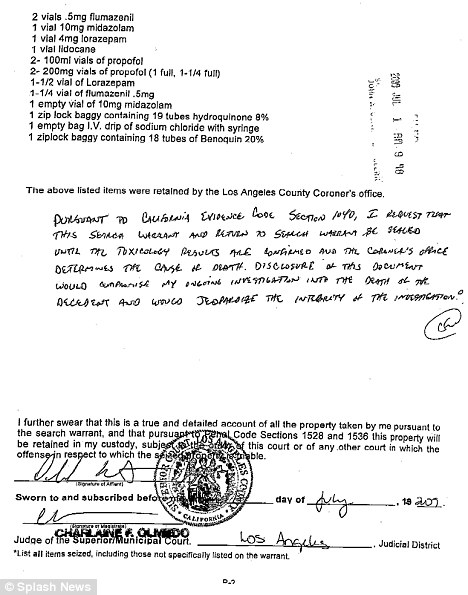 2 vials .5mg flumazenil
1 vial 10mg midazolam
1 vial 4mg lorazepam
1 vial lidocane
2- 100ml vials of propofol
2- 200mg vials of propofol (1 full, 1-1/4 full)
1-1/2 vial of Lorazepam
1-1/4 vial of flumazenil .5mg
1 empty vial of 10mg midazolam
1 zip lock baggy containing 19 tubes hydroquinone 8%
1 empty bag I.V. drip of sodium chloride with syringe
1 ziplock baggy containing 18 tubes of Benoquin 20%
2009 JUL 1 AM 9 48
The above listed items were retained by the Los Angeles County Coroner's office.
PURSUANT TO CALIFORNIA EVIDENCE CODE SECTION 1040, I REQUEST THAT
THIS SEARCH WARRANT AND RETURN TO SEARCH WARRANT BE SEALED
UNTIL THE TOXICOLOGY RESULTS ARE CONFIRMED AND THE CORONER'S OFFICE
DETERMINES THE CAUSE OF DEATH. DISCLOSURE OF THIS DOCUMENT
WOULD COMPROMISE MY ONGOING INVESTIGATION INTO THE DEATH OF THE
DECEDENT AND WOULD JEOPARDIZE THE INTEGRITY OF THE INVESTIGATION.
I further swear that this is a true and detailed account of all the property taken by me pursuant to
the search warrant, and that pursuant to Penal Code Sections 1528 and 1536 this property will
be retained in my custody, subject to the order of this court or of any other court in which the
offense in respect to which the seized property is triable.
(Signature of Affiant)
SUPERIOR COURT LOS ANGELES COUNTY
CALIFORNIA
Sworn to and subscribed before me day of July,
(Signature of Magistrate)
CHARLAINE F. OLMEDO
Judge of the Superior/Municipal Court. Los Angeles, Judicial District
*List all items seized, including those not specifically listed on the warrant.
© Splash News